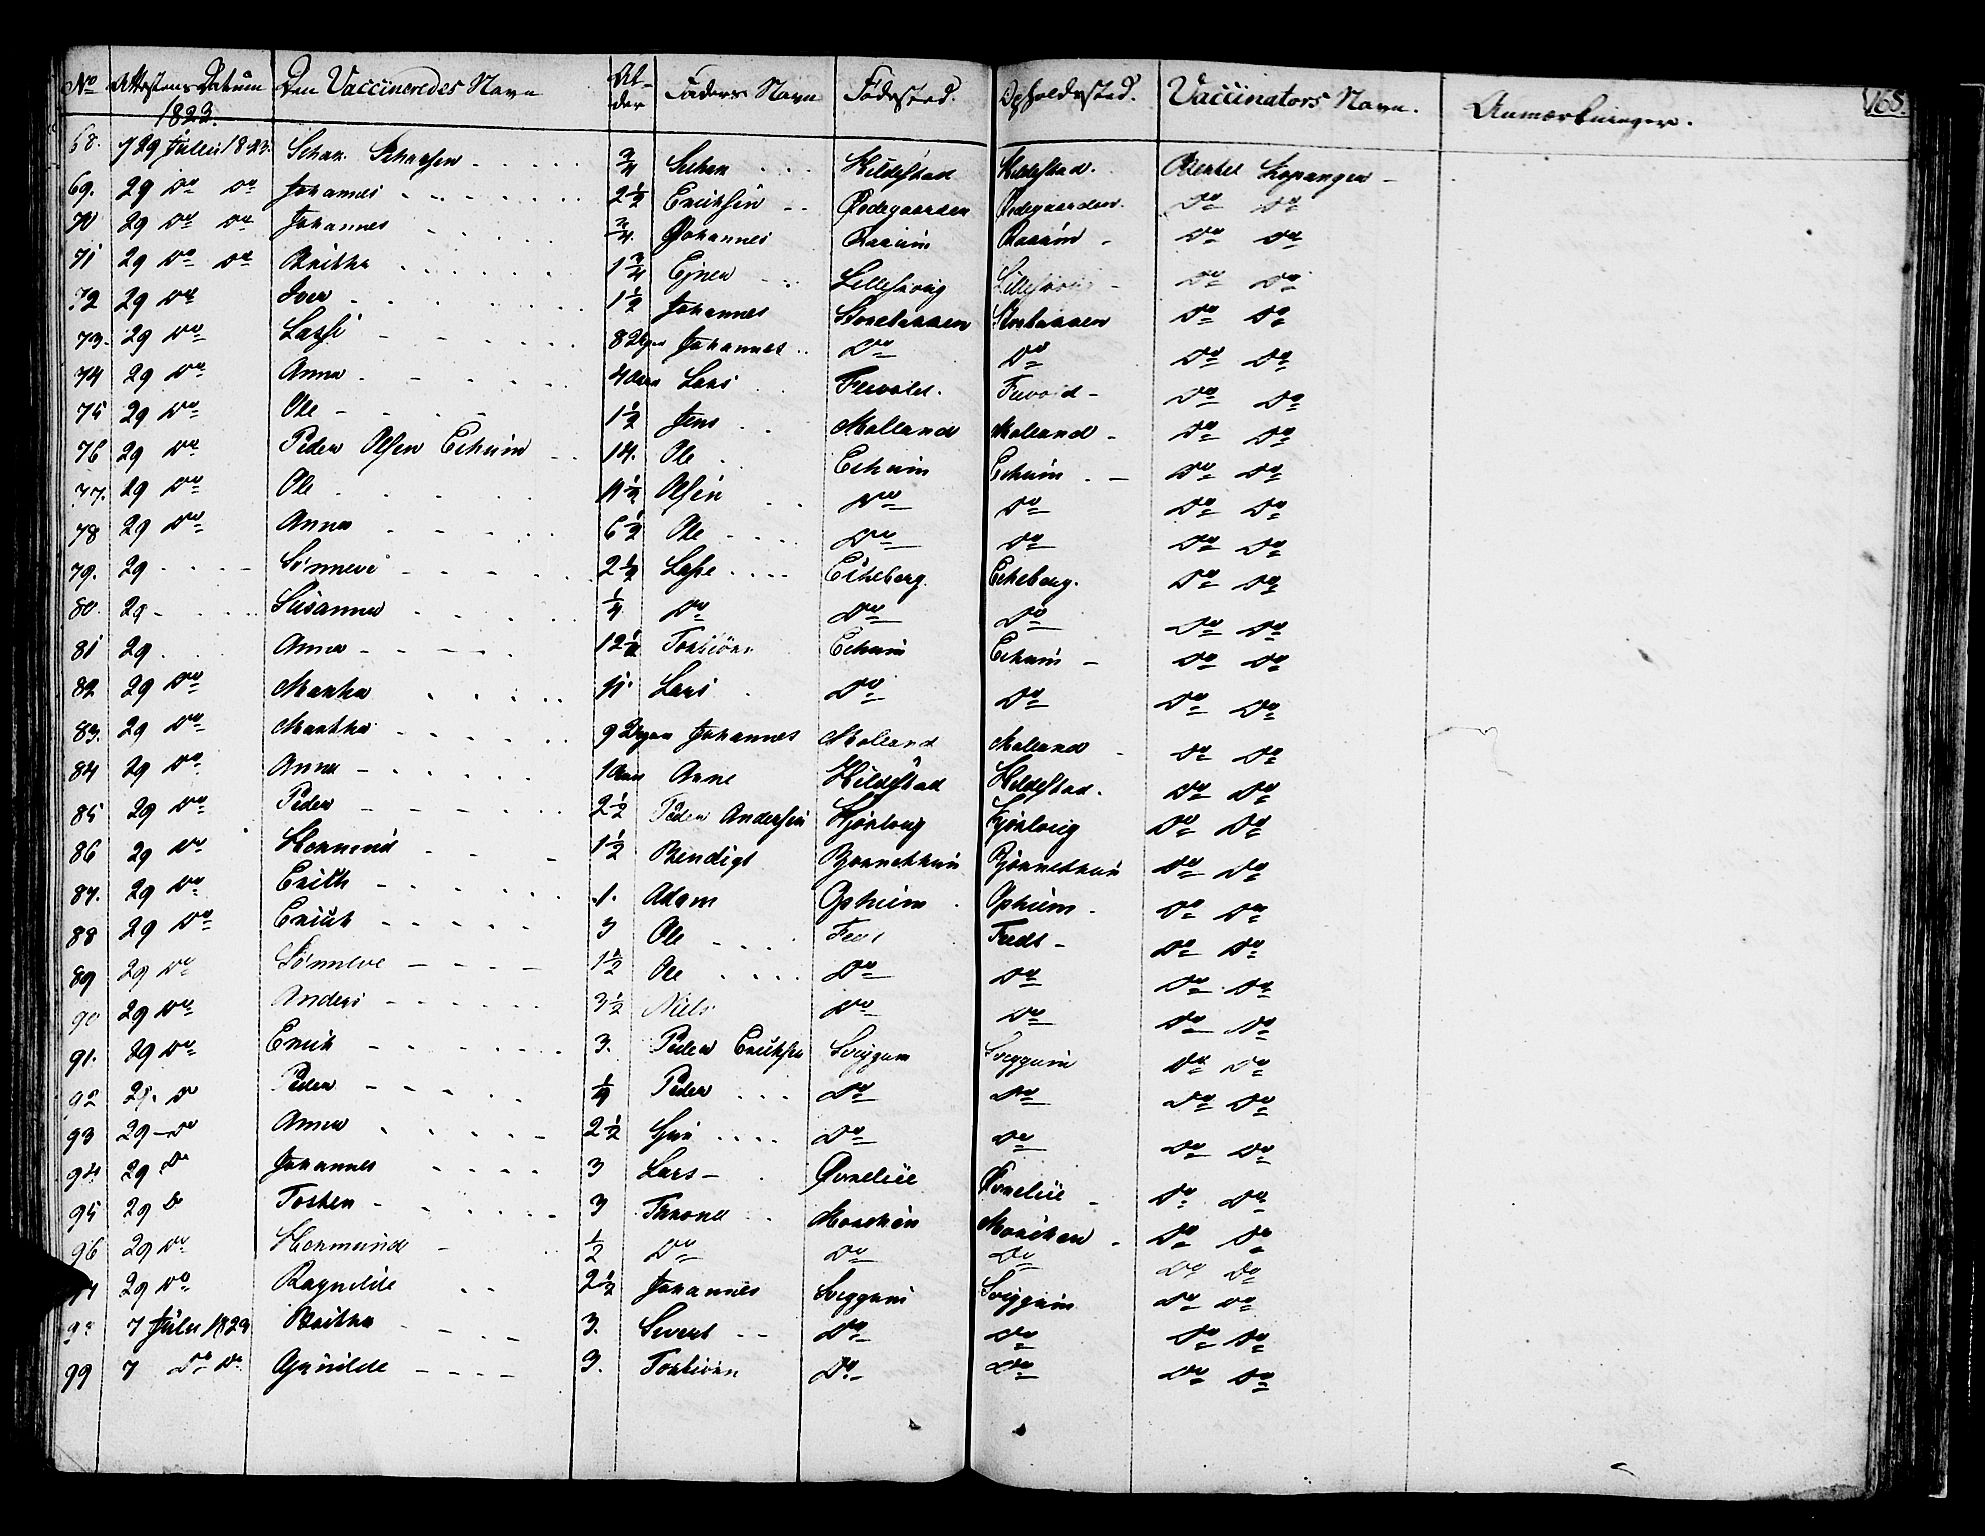 No Attestens Datum 1823. Den Vaccineredes Navn Al-der Faders Navn Fødested. Opholdssted. Vaccinators Navn. Anmærkninger. 168.
68. 29 Julii 1823. 3/4 Hildestad Hildestad.
69. 29 Do Do Johannes 2 1/2 Erichsen Ødegaarden Ødegaarden. Do Do
70 29 Do Do Johannes 3/4. Johannes Do Do
71 29 Do Do Britha 1 3/4 Ejner Do Do
72 29 Do Iver 1 1/2 Johannes Do Do
73. 29 Do Lasse 8 Johannes Do Do Do Do
74 29 Do Anna 4 Lars Do Do
75 29 Do Ole 1 1/2 Jens Molland Molland Do Do
76 29 Do Peder Olsen Eehuim 14. Ole Eehuim Eehuim Do Do
77. 29 Do Ole 11 1/2 Olsen Do Do Do Do
78 29 Do Anna 6 1/2 Ole Do Do Do Do
79. 29 Sønneve 2 1/2 Lasse Eicheberg. Eicheberg. Do Do
80. 29 Susanna 1/4 Do Do Do Do Do
81 29 Anna 12 1/2 Torbiörn Eehuim Eehuim Do Do
82 29 Do Martha 11. Lars Do Do Do Do
83. 29 Do Martha 9 Johannes Molland Molland Do Do
84 29 Do Anna 1 Arne Hildestad Hildestad. Do Do
85 29 Do Peder 2 1/2 Peder Andersen Do Do
86 29 Do Hermund 1 1/2 Bendigt Do Do
87. 29 Do Erich 1. Adam Opheim Opheim Do Do
88 29 Do Erich 3 Ole Feedt Feedt Do Do
89 29 Do Sønneve 1 1/2 Ole Do Do Do Do
90 29 Do Anders 3 1/2 Niels Do Do Do Do
91. 29 Do Erich 3. Peder Erichsen Sveggum Sveggum Do Do
92 29. Do Peder 1/4 Peder Do Do Do Do
93 29 Do Anna 2 1/2 Do Do Do Do
94 29 Do Johannes 3 Lars Ørnelüe Ørnelüe Do Do
95 29 Do Tosten 3 Throne Do Do
96 29 Do Hermund 1/2 Do Do Do Do Do
29 Do Ragnilde 2 1/2 Johannes Sveggum Sveggum Do Do
7 Julii 1823 Britha 3. Sivert Do Do Do Do
99 7 Do Do Gunilde 3. Torbiörn Do Do Do Do